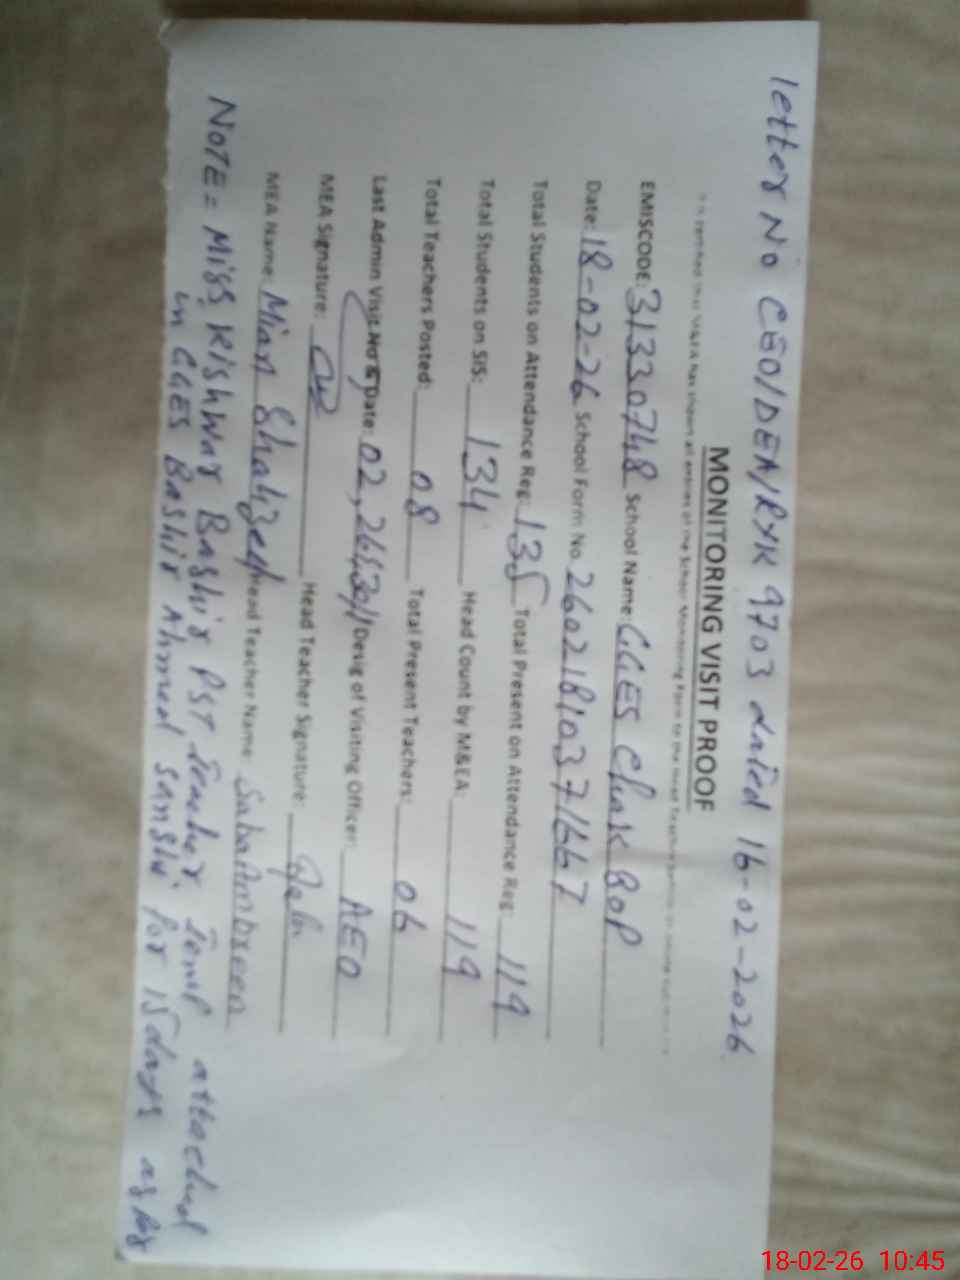 letter No CEO/DEA/RYK 9703 dated 16-02-2026
MONITORING VISIT PROOF
that M&EA has shown all entries of the School Monitoring Form to the Head Teacher
EMISCODE: 31330748 School Name: GGES Chak 80P
Date: 18-02-26 School Form No. 26021810371667
Total Students on Attendance Reg: 135 Total Present on Attendance Reg: 119
Total Students on SIS: 134 Head Count by M&EA: 119
Total Teachers Posted: 08 Total Present Teachers: 06
Last Admin Visit No & Date: 02, Desig of Visiting Officer: AEO
MEA Signature: Head Teacher Signature:
MEA Name: Mian Shahzad Head Teacher Name: Saba Ambreen
NOTE = Miss Kishwar Bashir PST Teacher Temp attached
in GGES Bashir Ahmed for 15 days as per
18-02-26 10:45